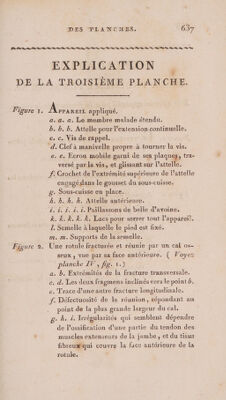 DES PLANCHES. 637
EXPLICATION
DE LA TROISIÈME PLANCHE.
Figure 1. APPAREIL appliqué.
a. a. a. Le membre malade étendu.
b. b. b. Attelle pour l'extension continuelle.
c. c. Vis de rappel.
d. Clef à manivelle propre à tourner la vis.
e. e. Ecrou mobile garni de ses plaques, tra-
versé par la vis, et glissant sur l'attelle.
f. Crochet de l'extrémité supérieure de l'attelle
engagé dans le gousset du sous-cuisse.
g. Sous-cuisse en place.
h. h. h. h. Attelle antérieure.
i. i. i. i. i. Paillassons de belle d'avoine.
k. k. k. k. k. Lacs pour serrer tout l'appareil.
l. Semelle à laquelle le pied est fixé.
m. m. Supports de la semelle.
Figure 2. Une rotule fracturée et réunie par un cal os-
seux, vue par sa face antérieure. ( Voyez
planche IV, fig. 1.)
a. b. Extrémités de la fracture transversale.
c. d. Les deux fragmens inclinés vers le point b.
e. Trace d'une autre fracture longitudinale.
f. Défectuosité de la réunion, répondant au
point de la plus grande largeur du cal.
g. h. i. Irrégularités qui semblent dépendre
de l'ossification d'une partie du tendon des
muscles extenseurs de la jambe, et du tissu
fibreux qui couvre la face antérieure de la
rotule.